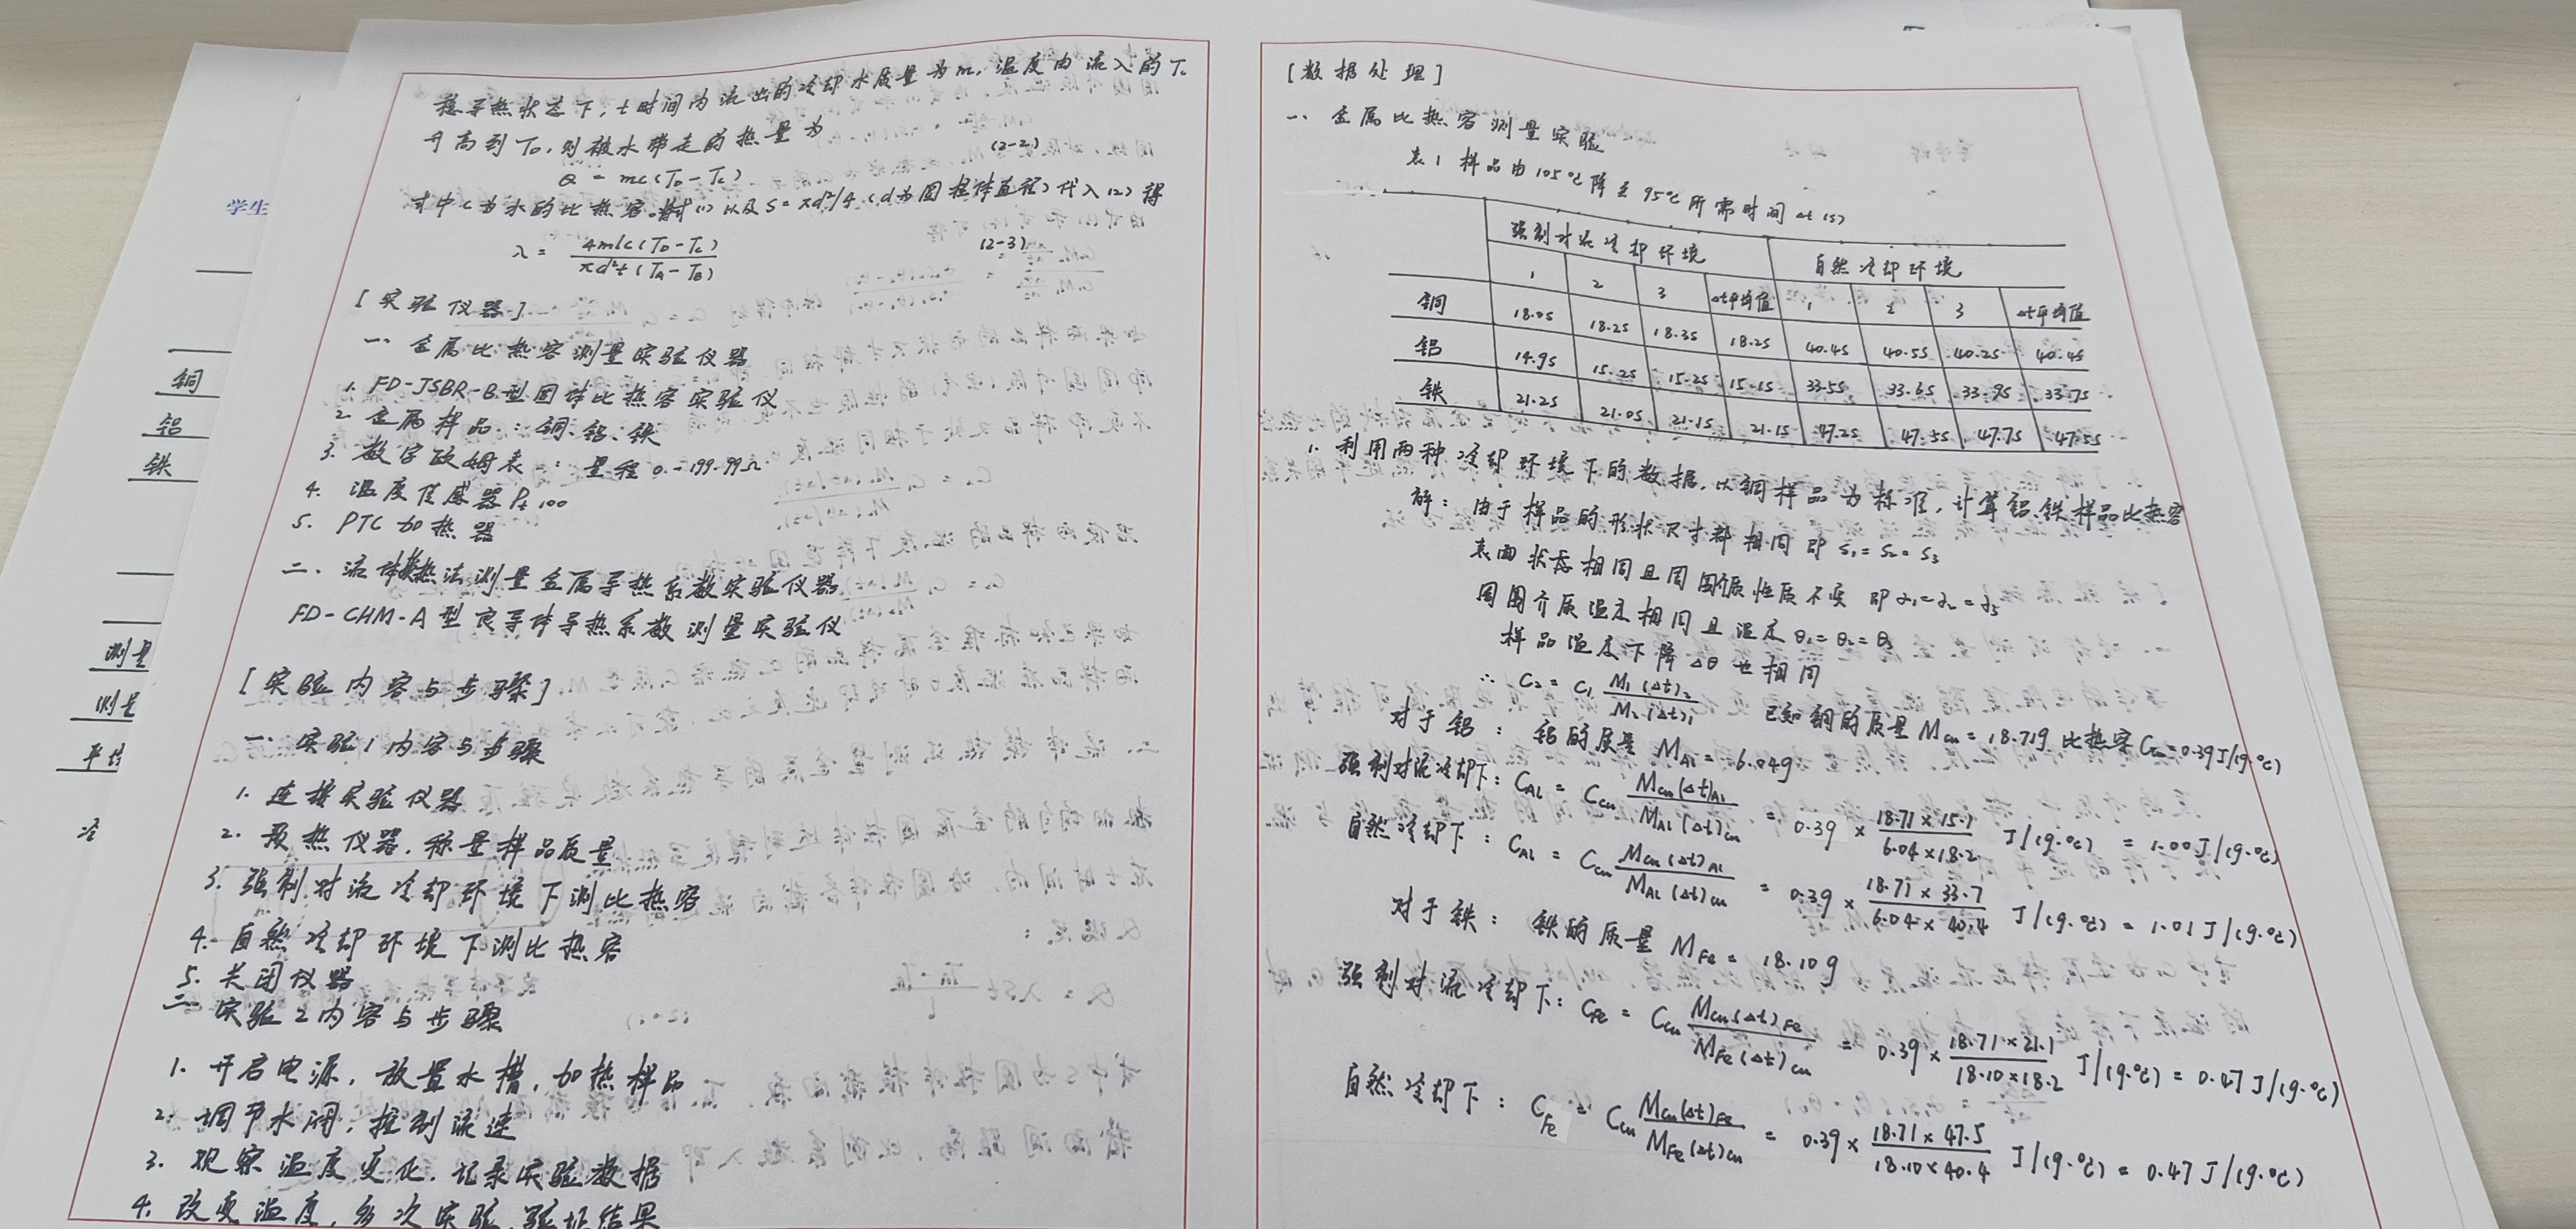 稳导热状态下,t时间内流出的冷却水质量为m,温度由流入的Tc
升高到TD,则被水带走的热量为
Q = mc(TD-Tc) (2-2)
式中c为水的比热容。将式(1)以及S=πd²/4(d为圆柱体直径)代入(2)得
λ = 4mlc(TD-Tc) / πd²t(TA-TB) (2-3)
[实验仪器]
一、金属比热容测量实验仪器
1. FD-JSBR-B型固体比热容实验仪
2. 金属样品:铜、铝、铁
3. 数字欧姆表:量程0-199.99Ω
4. 温度传感器Pt100
5. PTC加热器
二、流体换热法测量金属导热系数实验仪器
FD-CHM-A型良导体导热系数测量实验仪
[实验内容与步骤]
一、实验1内容与步骤
1. 连接实验仪器
2. 预热仪器,称量样品质量
3. 强制对流冷却环境下测比热容
4. 自然冷却环境下测比热容
5. 关闭仪器
二、实验2内容与步骤
1. 开启电源,放置水槽,加热样品
2. 调节水阀,控制流速
3. 观察温度变化,记录实验数据
4. 改变温度,多次实验,验证结果
[数据处理]
一、金属比热容测量实验
表1 样品由105℃降至95℃所需时间Δt(s)
强制对流冷却环境 自然冷却环境
1 2 3 Δt平均值 1 2 3 Δt平均值
铜 18.0s 18.2s 18.3s 18.2s 40.4s 40.5s 40.2s 40.4s
铝 14.9s 15.2s 15.2s 15.1s 33.5s 33.6s 33.9s 33.7s
铁 21.2s 21.0s 21.1s 21.1s 47.2s 47.5s 47.7s 47.5s
1. 利用两种冷却环境下的数据,以铜样品为标准,计算铝、铁样品比热容
解:由于样品的形状尺寸都相同 即 S₁=S₂=S₃
表面状态相同且周围介质性质不变 即 α₁=α₂=α₃
周围介质温度相同且温度 θ₁=θ₂=θ₃
样品温度下降Δθ也相同
∴ C₂ = C₁ M₁(Δt)₂ / M₂(Δt)₁ 已知铜的质量 Mcu=18.71g 比热容 Ccu=0.39J/(g·℃)
对于铝:铝的质量 MAl = 6.04g
强制对流冷却下:CAl = Ccu Mcu(Δt)Al / MAl(Δt)cu = 0.39 × 18.71×15.1 / 6.04×18.2 J/(g·℃) = 1.00J/(g·℃)
自然冷却下:CAl = Ccu Mcu(Δt)Al / MAl(Δt)cu = 0.39 × 18.71×33.7 / 6.04×40.4 J/(g·℃) = 1.01J/(g·℃)
对于铁:铁的质量 MFe = 18.10g
强制对流冷却下:CFe = Ccu Mcu(Δt)Fe / MFe(Δt)cu = 0.39 × 18.71×21.1 / 18.10×18.2 J/(g·℃) = 0.47J/(g·℃)
自然冷却下:CFe = Ccu Mcu(Δt)Fe / MFe(Δt)cu = 0.39 × 18.71×47.5 / 18.10×40.4 J/(g·℃) = 0.47J/(g·℃)
学生
铜
铝
铁
测量
测量
冷